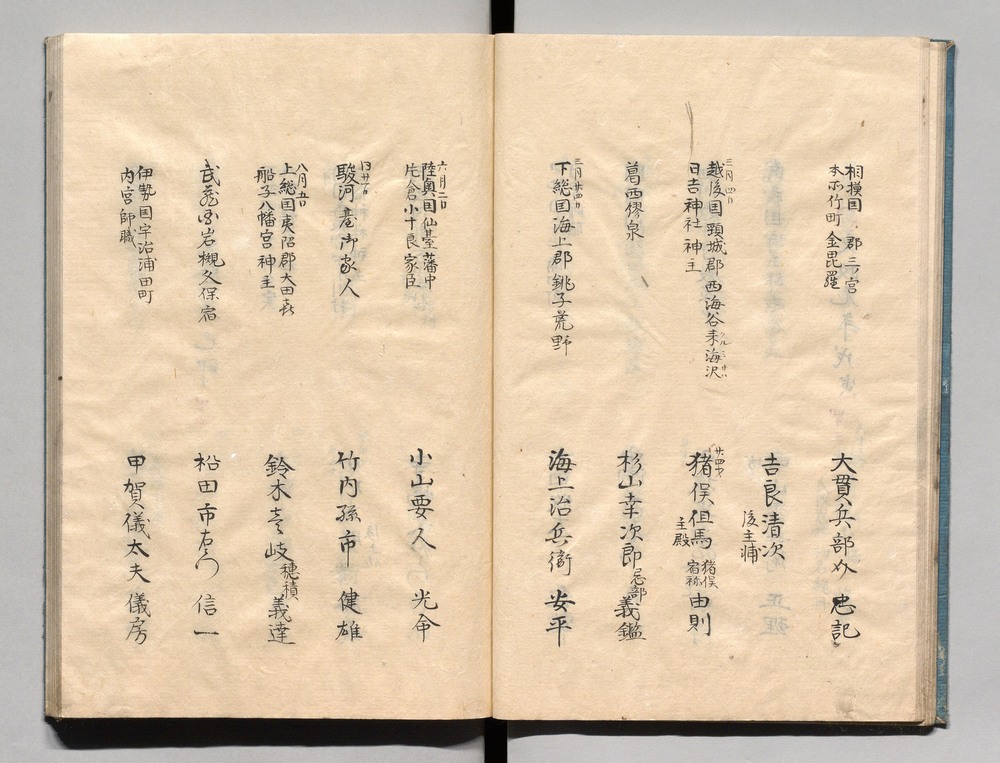 相模国 郡三ノ宮
本所竹町金毘羅
大貫兵部少 忠記
吉良清次
後主浦
三月四日
越後国頸城郡西海谷来海沢
クルミサハ
日吉神社神主
廿四才
猪俣但馬
主殿
猪俣
宿祢
由則
葛西 泉
杉山幸次郎
忌部
義鑑
三月廿四日
下総国海上郡銚子荒野
海上治兵衛 安平
六月二日
陸奥国仙台藩中
片倉小十良家臣
小山要人 光命
同廿一日
駿河台御家人
竹内孫市 健雄
八月五日
上総国夷隅郡大田喜
船子八幡宮神主
鈴木壱岐
穂積
義達
武蔵国岩槻久保宿
松田市右衛門 信一
伊勢国宇治浦田町
内宮師職
甲賀儀太夫 儀房